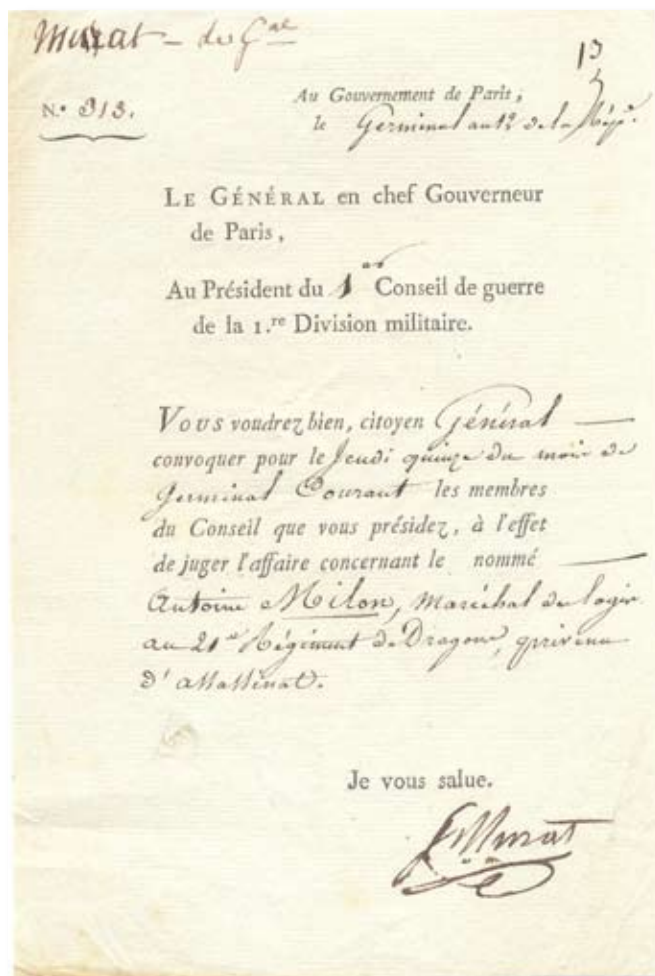 Murat - du Gal
13
N.° 313.
Au Gouvernement de Paris,
le Germinal an 12 de la Rép.
LE GÉNÉRAL en chef Gouverneur
de Paris,
Au Président du 1er Conseil de guerre
de la 1.re Division militaire.
Vous voudrez bien, citoyen Général
convoquer pour le Jeudi quinze du mois de
Germinal Courant les membres
du Conseil que vous présidez, à l'effet
de juger l'affaire concernant le nommé
Antoine Milon, Maréchal de logis
au 21e Régiment de Dragons, prévenu
d'assassinat.
Je vous salue.
Murat